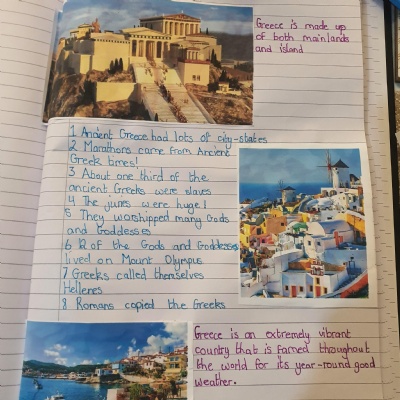 Greece is made up
of both mainlands
and island
1 Ancient Greece had lots of city-states
2 Marathons came from Ancient
Greek times!
3 About one third of the
ancient Greeks were slaves
4 The juries were huge!
5 They worshipped many Gods
and Goddesses
6 12 of the Gods and Goddesses
lived on Mount Olympus
7 Greeks called themselves
Hellenes
8 Romans copied the Greeks
Greece is an extremely vibrant
country that is famed throughout
the world for its year-round good
weather.